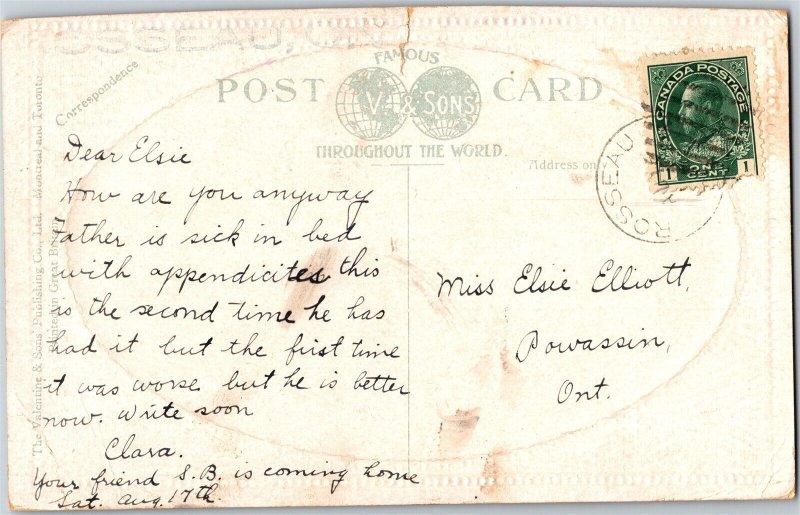 FAMOUS
POST CARD
V. & SONS
THROUGHOUT THE WORLD.
Correspondence
Address only
The Valentine & Sons Publishing Co., Ltd. Montreal and Toronto
Printed in Great Britain
CANADA POSTAGE
1 ONE CENT 1
ROSSEAU
Dear Elsie
How are you anyway
Father is sick in bed
with appendicites this
is the second time he has
had it but the first time
it was worse but he is better
now. Write soon
Clara.
Your friend S.B. is coming home
Sat. Aug. 17th.
Miss Elsie Elliott,
Powassin,
Ont.